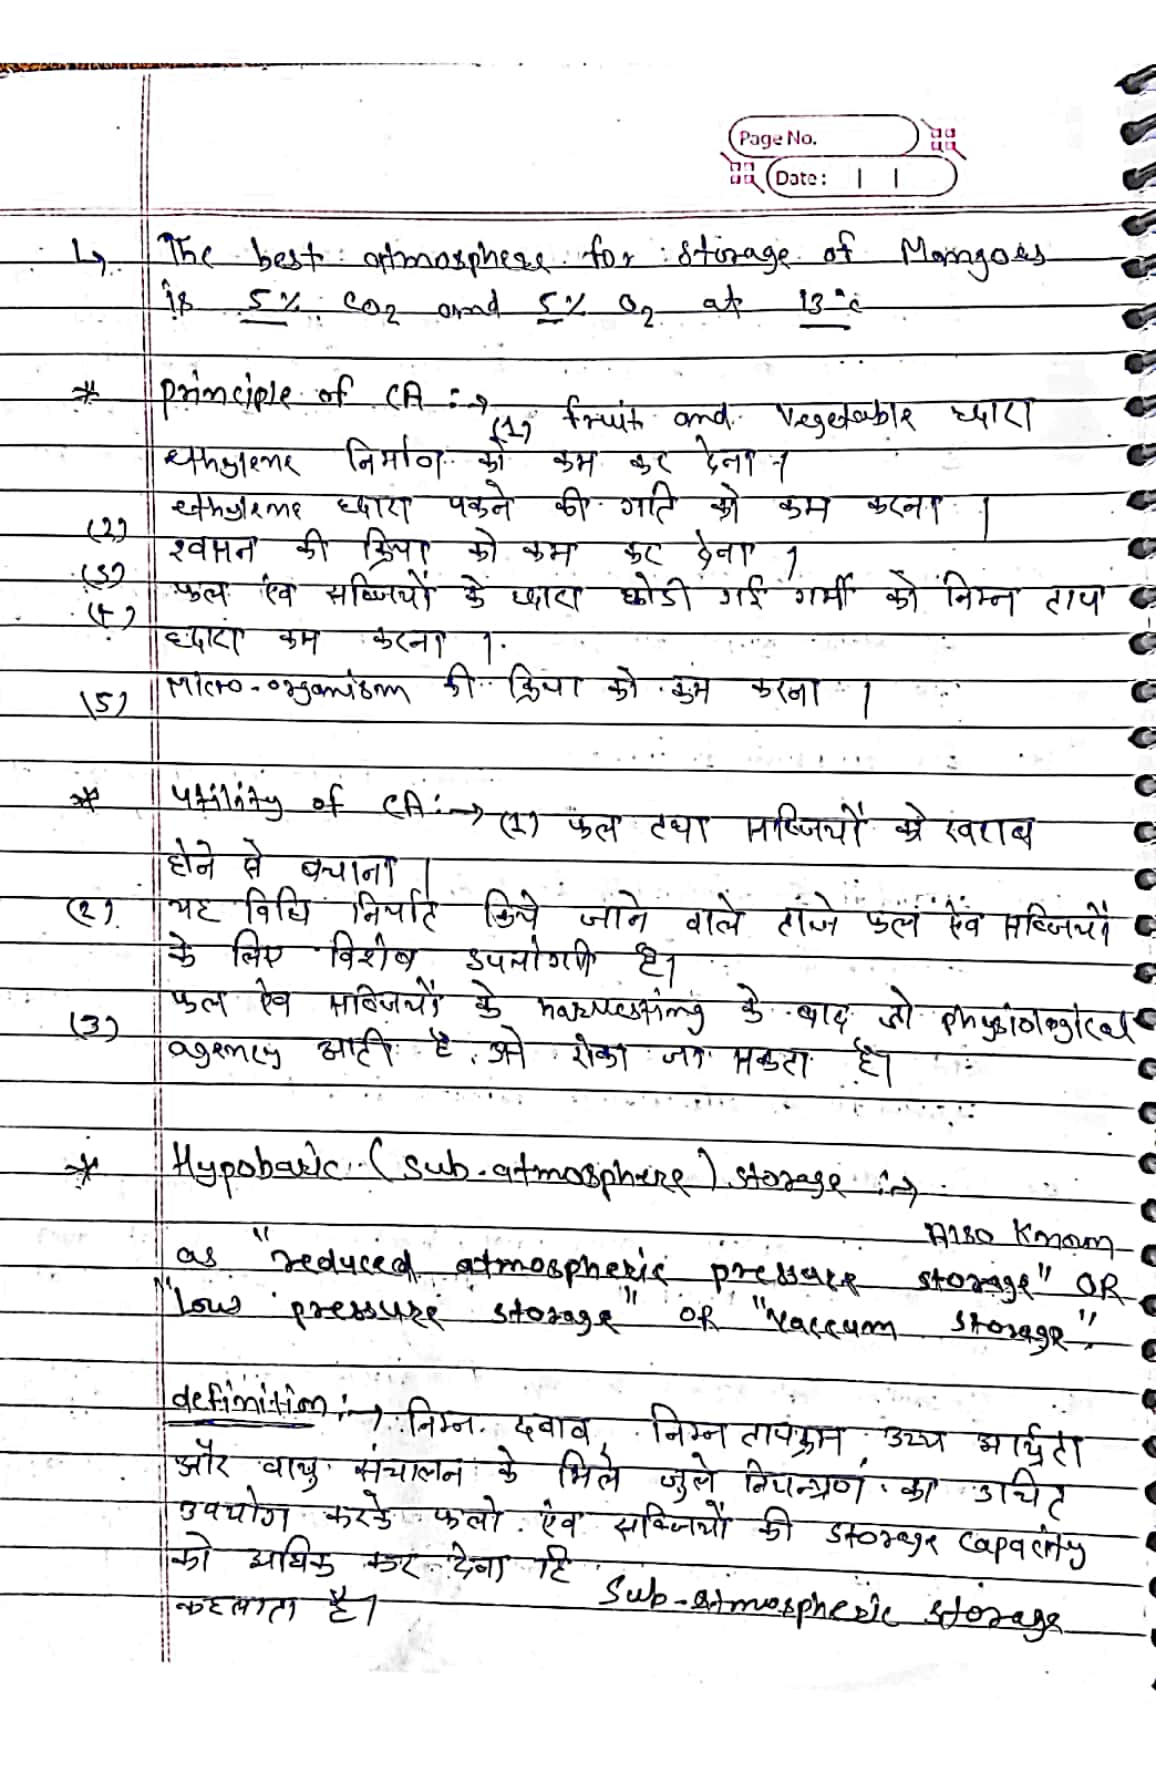 Page No.
Date: | |
↳ The best atmosphere for storage of Mangoes
is 5% CO2 and 5% O2 at 13°c
* Principle of CA :→ (1) fruit and vegetable ध्दारा
ethylene निर्माण को कम कर देना ।
(2) ethylene ध्दारा पकने की गति को कम करना ।
(3) श्वसन की क्रिया को कम कर देना ।
(4) फल एंव सब्जियों के ध्दारा छोडी गई गर्मी को निम्न ताप
ध्दारा कम करना ।
(5) Micro-organism की क्रिया को कम करना ।
* Utility of CA :→ (1) फल तथा सब्जियों को खराब
होने से बचाना ।
(2) यह विधि निर्यात किये जाने वाले ताजे फल एंव सब्जियों
के लिए विशेष उपयोगी है।
(3) फल एंव सब्जियों के harvesting के बाद जो physiological
agency आती है उसे रोका जा सकता है।
* Hypobaric (Sub-atmosphere) storage :→
Also Known
as "reduced atmospheric pressure storage" OR
"Low pressure storage" OR "Vaccum storage".
definition :→ निम्न दबाव, निम्न तापक्रम उच्च आर्द्रता
और वायु संचालन के मिले जुले नियन्त्रण का उचित
उपयोग करके फलो एंव सब्जियों की storage capacity
को अधिक कर देना हि Sub-atmospheric storage
कहलाता है।